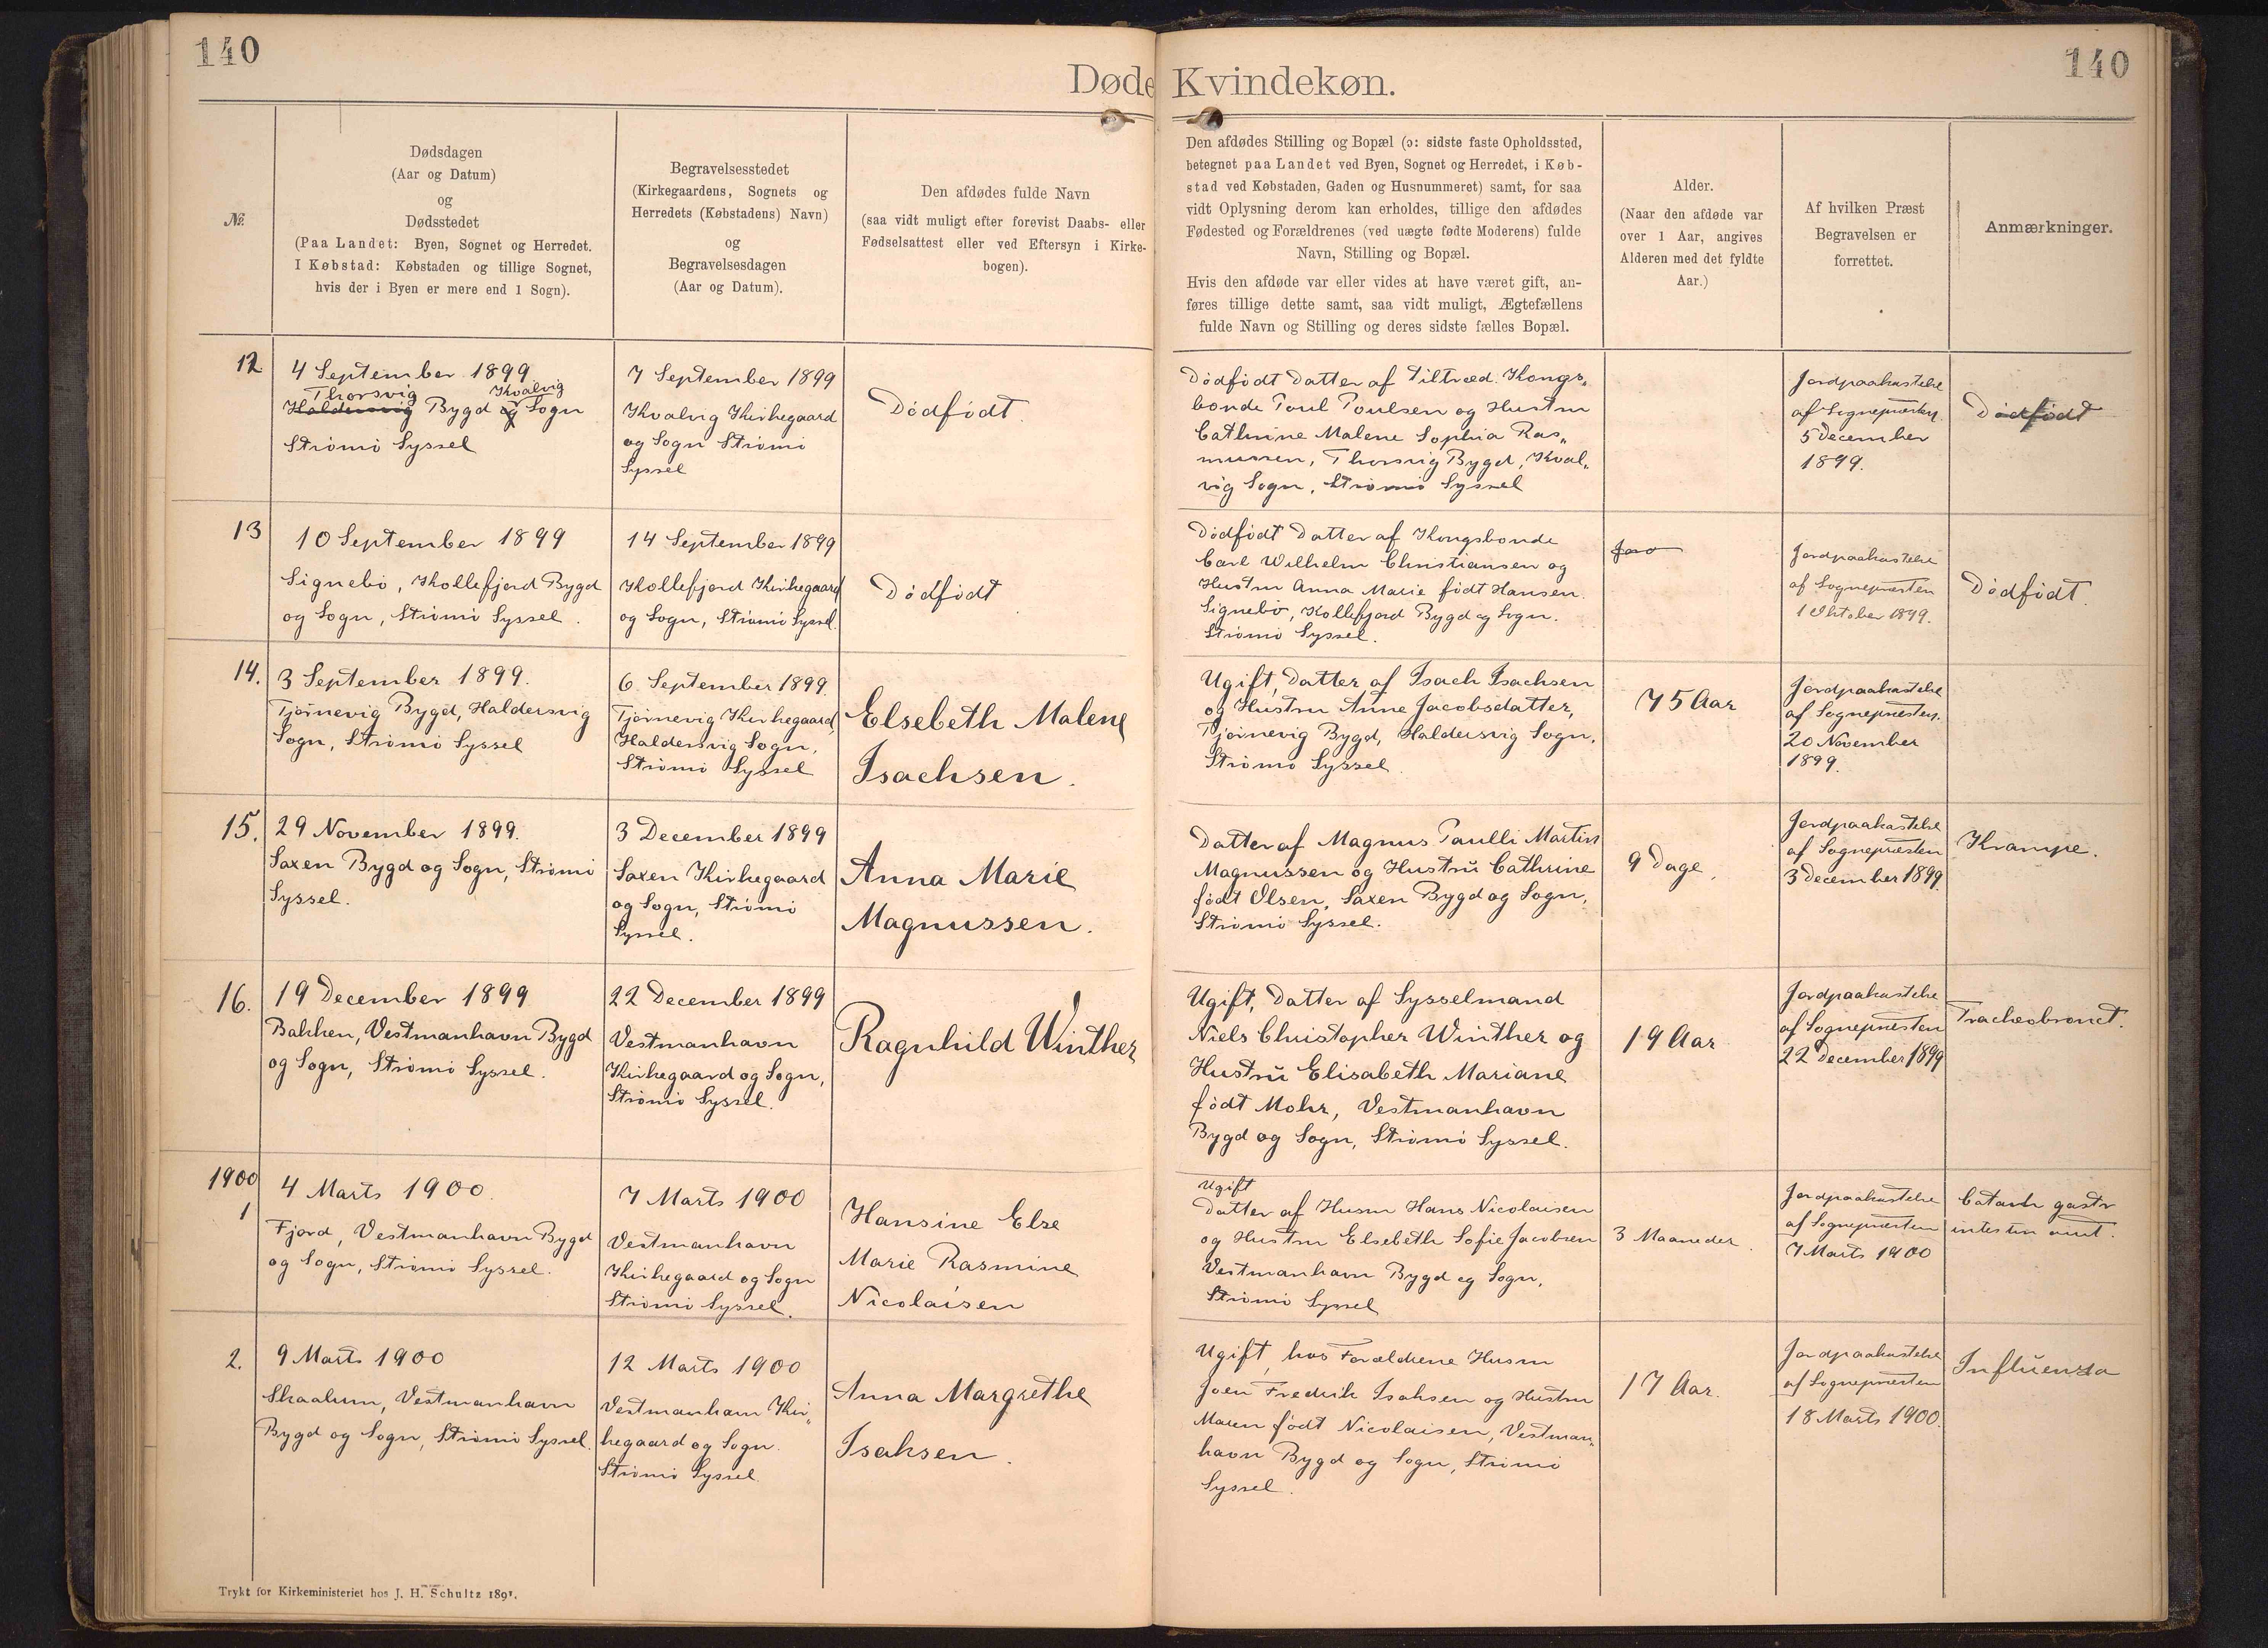 140
140
Døde Kvindekøn.
№
Dødsdagen
(Aar og Datum)
og
Dødsstedet
(Paa Landet: Byen, Sognet og Herredet.
I Købstad: Købstaden og tillige Sognet,
hvis der i Byen er mere end 1 Sogn).
Begravelsesstedet
(Kirkegaardens, Sognets og
Herredets (Købstadens) Navn)
og
Begravelsesdagen
(Aar og Datum).
Den afdødes fulde Navn
(saa vidt muligt efter forevist Daabs- eller
Fødselsattest eller ved Eftersyn i Kirke-
bogen).
Den afdødes Stilling og Bopæl (ɔ: sidste faste Opholdssted,
betegnet paa Landet ved Byen, Sognet og Herredet, i Køb-
stad ved Købstaden, Gaden og Husnummeret) samt, for saa
vidt Oplysning derom kan erholdes, tillige den afdødes
Fødested og Forældrenes (ved uægte fødte Moderens) fulde
Navn, Stilling og Bopæl.
Hvis den afdøde var eller vides at have været gift, an-
føres tillige dette samt, saa vidt muligt, Ægtefællens
fulde Navn og Stilling og deres sidste fælles Bopæl.
Alder.
(Naar den afdøde var
over 1 Aar, angives
Alderen med det fyldte
Aar.)
Af hvilken Præst
Begravelsen er
forrettet.
Anmærkninger.
12
4 September 1899
Thorsvig Kvalvig
Haldersvig Bygd og Sogn
Strømø Syssel
7 September 1899
Kvalvig Kirkegaard
og Sogn Strømø
Syssel
Dødfødt.
Dødfødt Datter af Tiltræd. Kongs„
bonde Poul Poulsen og Hustru
Cathrine Malene Sophia Ras„
mussen, Thorsvig Bygd, Kval„
vig Sogn, Strømø Syssel
Jordpaakastelse
af Sognepræsten
5 December
1899.
Dødfødt
13
10 September 1899
Signebø, Kollefjord Bygd
og Sogn, Strømø Syssel.
14 September 1899
Kollefjord Kirkegaard
og Sogn, Strømø Syssel.
Dødfødt
Dødfødt Datter af Kongsbonde
Carl Wilhelm Christiansen og
Hustru Anna Marie født Hansen.
Signebø, Kollefjord Bygd og Sogn.
Strømø Syssel.
Jordpaakastelse
af Sognepræsten
1 Oktober 1899.
Dødfødt.
14.
3 September 1899.
Tjørnevig Bygd, Haldersvig
Sogn, Strømø Syssel
6 September 1899.
Tjørnevig Kirkegaard,
Haldersvig Sogn,
Strømø Syssel
Elsebeth Malene
Isachsen.
Ugift, Datter af Isach Isachsen
og Hustru Anne Jacobsdatter,
Tjørnevig Bygd, Haldersvig Sogn,
Strømø Syssel.
75 Aar
Jordpaakastelse
af Sognepræsten.
20 November
1899.
15.
29 November 1899.
Saxen Bygd og Sogn, Strømø
Syssel.
3 December 1899
Saxen Kirkegaard
og Sogn, Strømø
Syssel.
Anna Marie
Magnussen.
Datter af Magnus Paulli Martin
Magnussen og Hustrū Cathrine
født Olsen, Saxen Bygd og Sogn,
Strømø Syssel.
9 Dage.
Jordpaakastelse
af Sognepræsten
3 December 1899
Krampe.
16.
19 December 1899
Bakken, Vestmanhavn Bygd
og Sogn, Strømø Syssel.
22 December 1899
Vestmanhavn
Kirkegaard og Sogn,
Strømø Syssel.
Ragnhild Winther
Ugift, Datter af Sysselmand
Niels Christopher Winther og
Hustrū Elisabeth Mariane
født Mohr, Vestmanhavn
Bygd og Sogn, Strømø Syssel.
19 Aar
Jordpaakastelse
af Sognepræsten
22 December 1899
Tracheobronct.
1900
1
4 Marts 1900.
Fjord, Vestmanhavn Bygd
og Sogn, Strømø Syssel.
7 Marts 1900
Vestmanhavn
Kirkegaard og Sogn
Strømø Syssel.
Hansine Else
Marie Rasmine
Nicolaisen
Ugift
Datter af Husm Hans Nicolaisen
og Hustru Elsebeth Sofie Jacobsen
Vestmanhavn Bygd og Sogn,
Strømø Syssel
3 Maaneder.
Jordpaakastelse
af Sognepræsten
7 Marts 1900
Catarh gastr
intestin
2.
9 Marts 1900
Skaalum, Vestmanhavn
Bygd og Sogn, Strømø Syssel.
12 Marts 1900
Vestmanhavn Kir„
kegaard og Sogn.
Strømø Syssel.
Anna Margrethe
Isaksen.
Ugift, hos Forældrene Husm
Joen Fredrik Isaksen og Hustru
Maren født Nicolaisen, Vestman„
havn Bygd og Sogn, Strømø
Syssel.
17 Aar.
Jordpaakastelse
af Sognepræsten
18 Marts 1900.
Influensa
Trykt for Kirkeministeriet hos J. H. Schultz 1891.